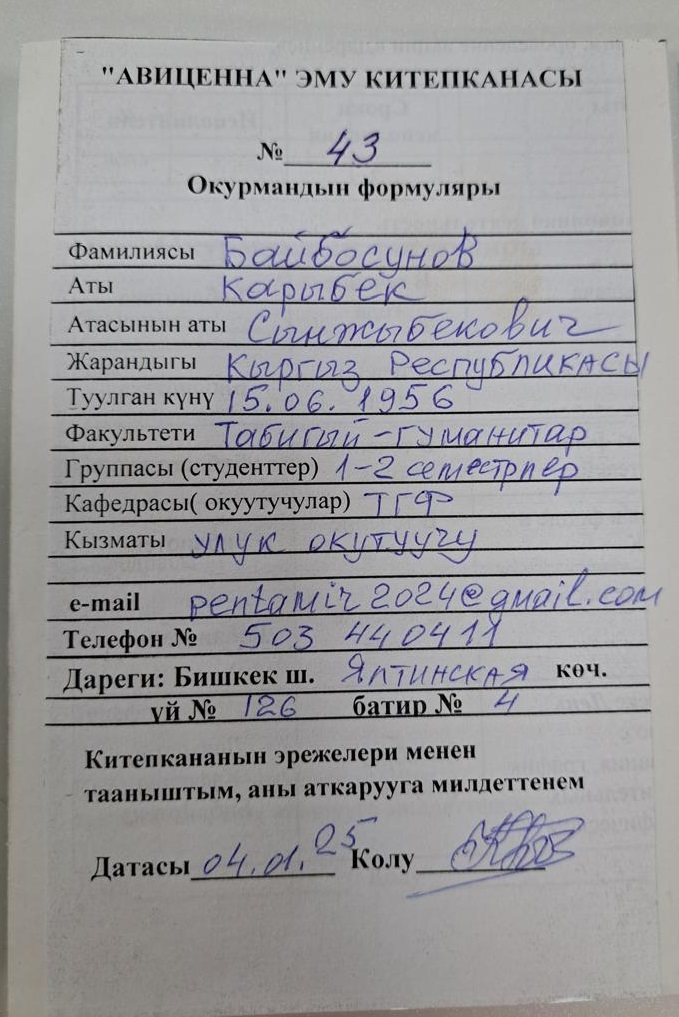 "АВИЦЕННА" ЭМУ КИТЕПКАНАСЫ
№ 43
Окурмандын формуляры
Фамилиясы Байбосунов
Аты Карыбек
Атасынын аты Сынжыбекович
Жарандыгы Кыргыз Республикасы
Туулган күнү 15.06.1956
Факультети Табигый-гуманитар
Группасы (студенттер) 1-2 семестрлер
Кафедрасы( окуутучулар) ТГФ
Кызматы улук окутуучу
e-mail pentamir2024@gmail.com
Телефон № 503 440411
Дареги: Бишкек ш. Ялтинская көч.
үй № 126 батир № 4
Китепкананын эрежелери менен
тааныштым, аны аткарууга милдеттенем
Датасы 04.01.25 Колу